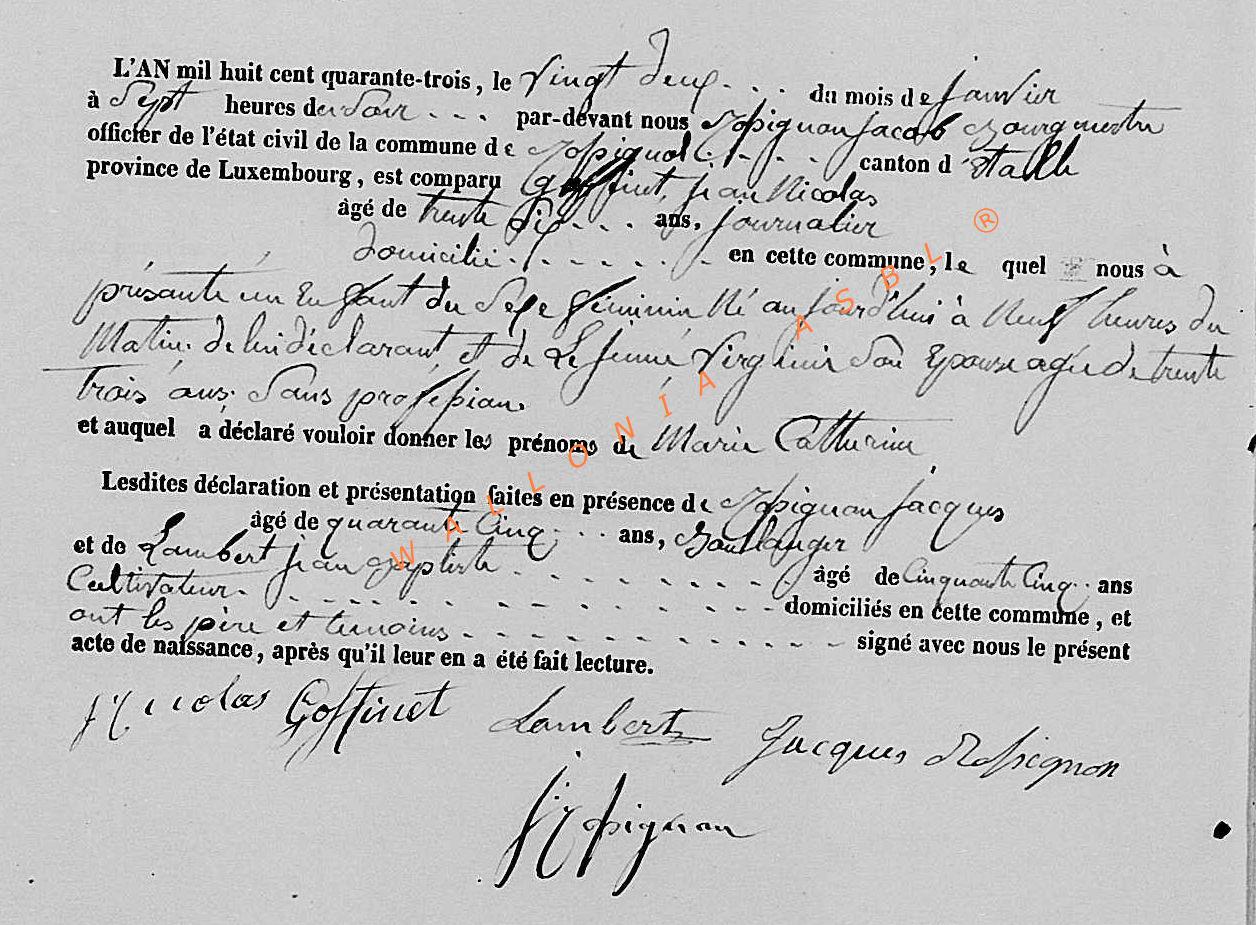 L'AN mil huit cent quarante-trois, le vingt deux . . . du mois de janvier
à Sept heures du Soir . . . par-devant nous Rossignon Jacob Bourgmestre
officier de l'état civil de la commune de Rossignol . . . . canton d'Etalle
province de Luxembourg, est comparu Goffinet, jean Nicolas
âgé de trente Six . . . ans, journalier
domicilié . . . . . . en cette commune, le quel nous à
présanté un Enfant du Sexe féminin Né aujourd'hui à Neuf heures du
Matin. de lui déclarant, et de Lejeune Virginie Son Epouse agée de trente
trois ans. Sans profession.
et auquel a déclaré vouloir donner les prénoms de Marie Catherine
Lesdites déclaration et présentation faites en présence de Rossignon Jacques
âgé de quarante Cinq . . . ans, Boullanger
et de Lambert jean Baptiste . . . . . . . . . âgé de Cinquante Cinq . . ans
Cultivateur . . . . . . . . . . . . . . domiciliés en cette commune, et
ont les père et temoins . . . . . . . . . . . . signé avec nous le présent
acte de naissance, après qu'il leur en a été fait lecture.
Nicolas Goffinet Lambert Jacques Rossignon
Rossignon
WALLONIA ASBL ®